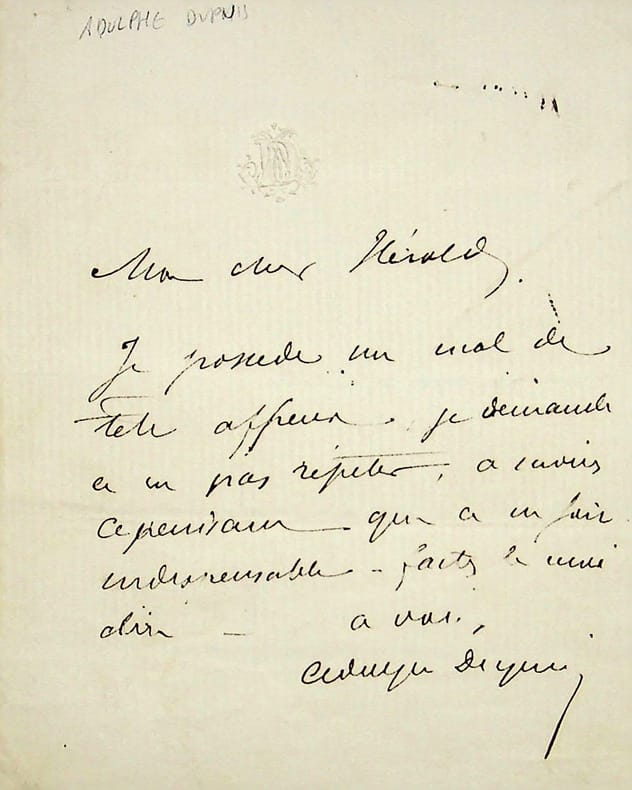 ADOLPHE DUPUIS
Mon cher Hérold,
Je possede un mal de
tete affreux. je demande
a ne pas répeter, a moins
cependant que ce ne soit
indispensable - faites le moi
dire - a vous,
Adolphe Dupuis